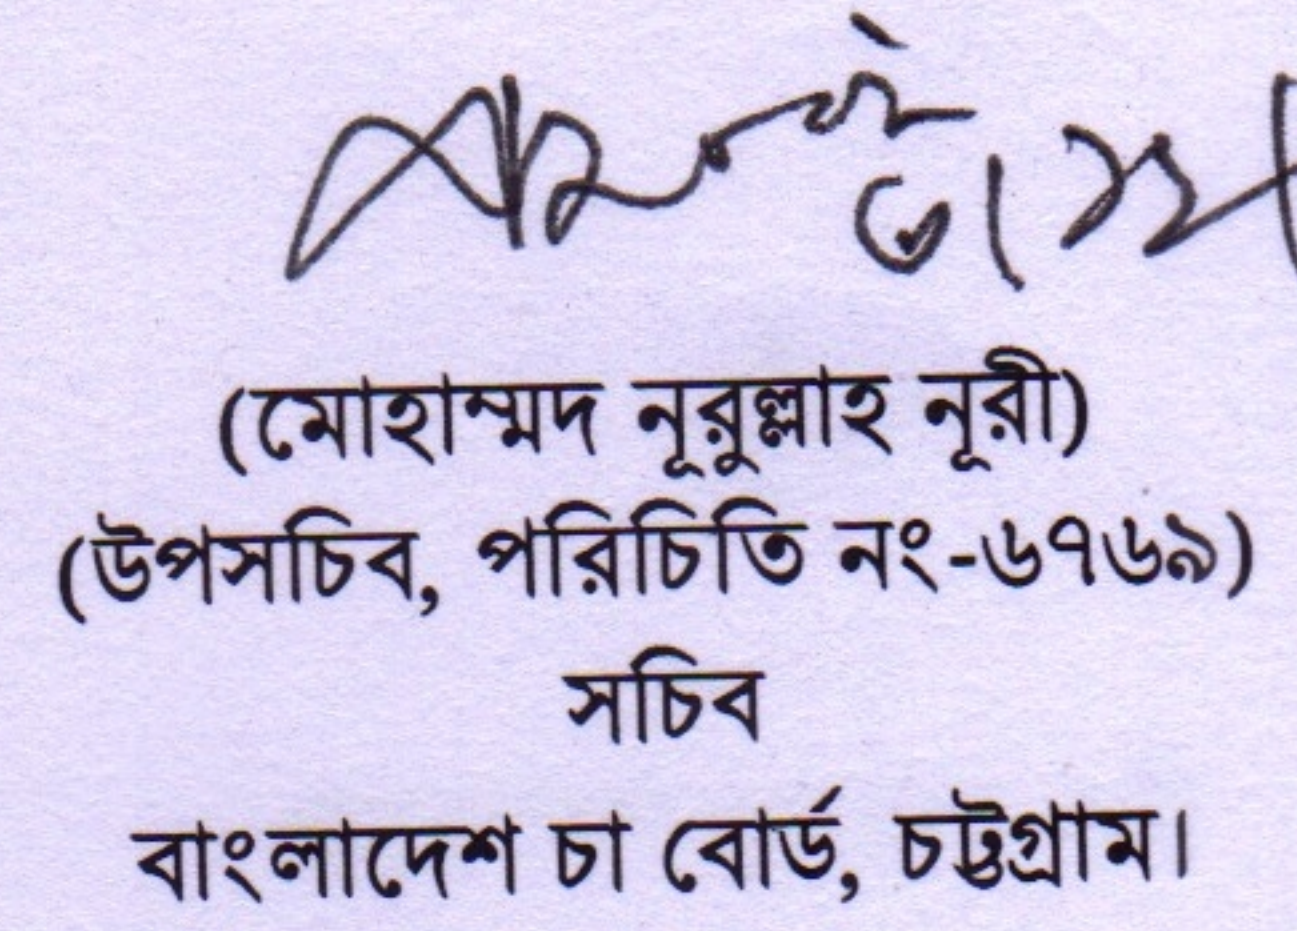 (মোহাম্মদ নূরুল্লাহ নূরী)
(উপসচিব, পরিচিতি নং-৬৭৬৯)
সচিব
বাংলাদেশ চা বোর্ড, চট্টগ্রাম।